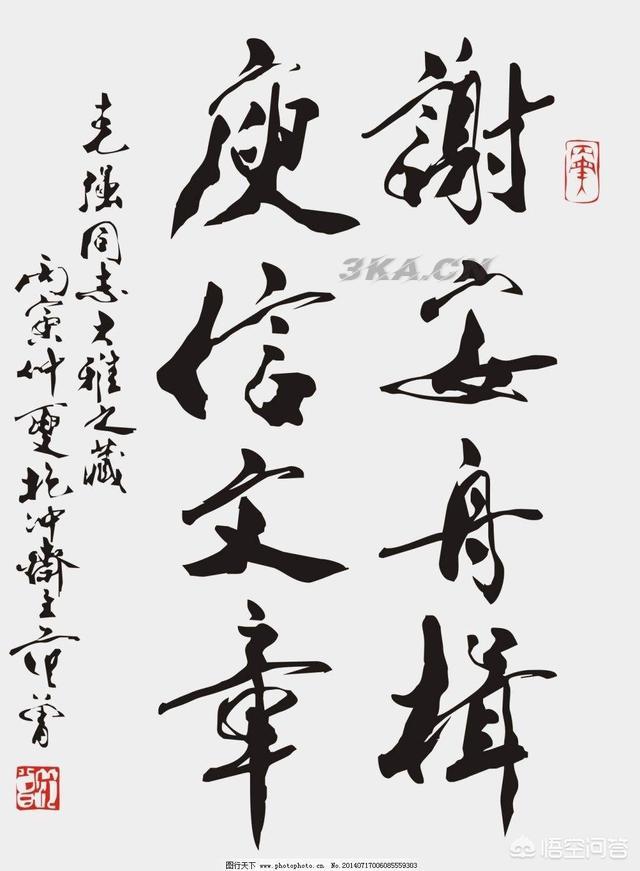 謝安舟楫
庾信文章
克強同志大雅之藏
丙寅仲夏抱沖齋主范曾
3KA.CN
图行天下 www.photophoto.cn No.20140717006085559303
悟空问答